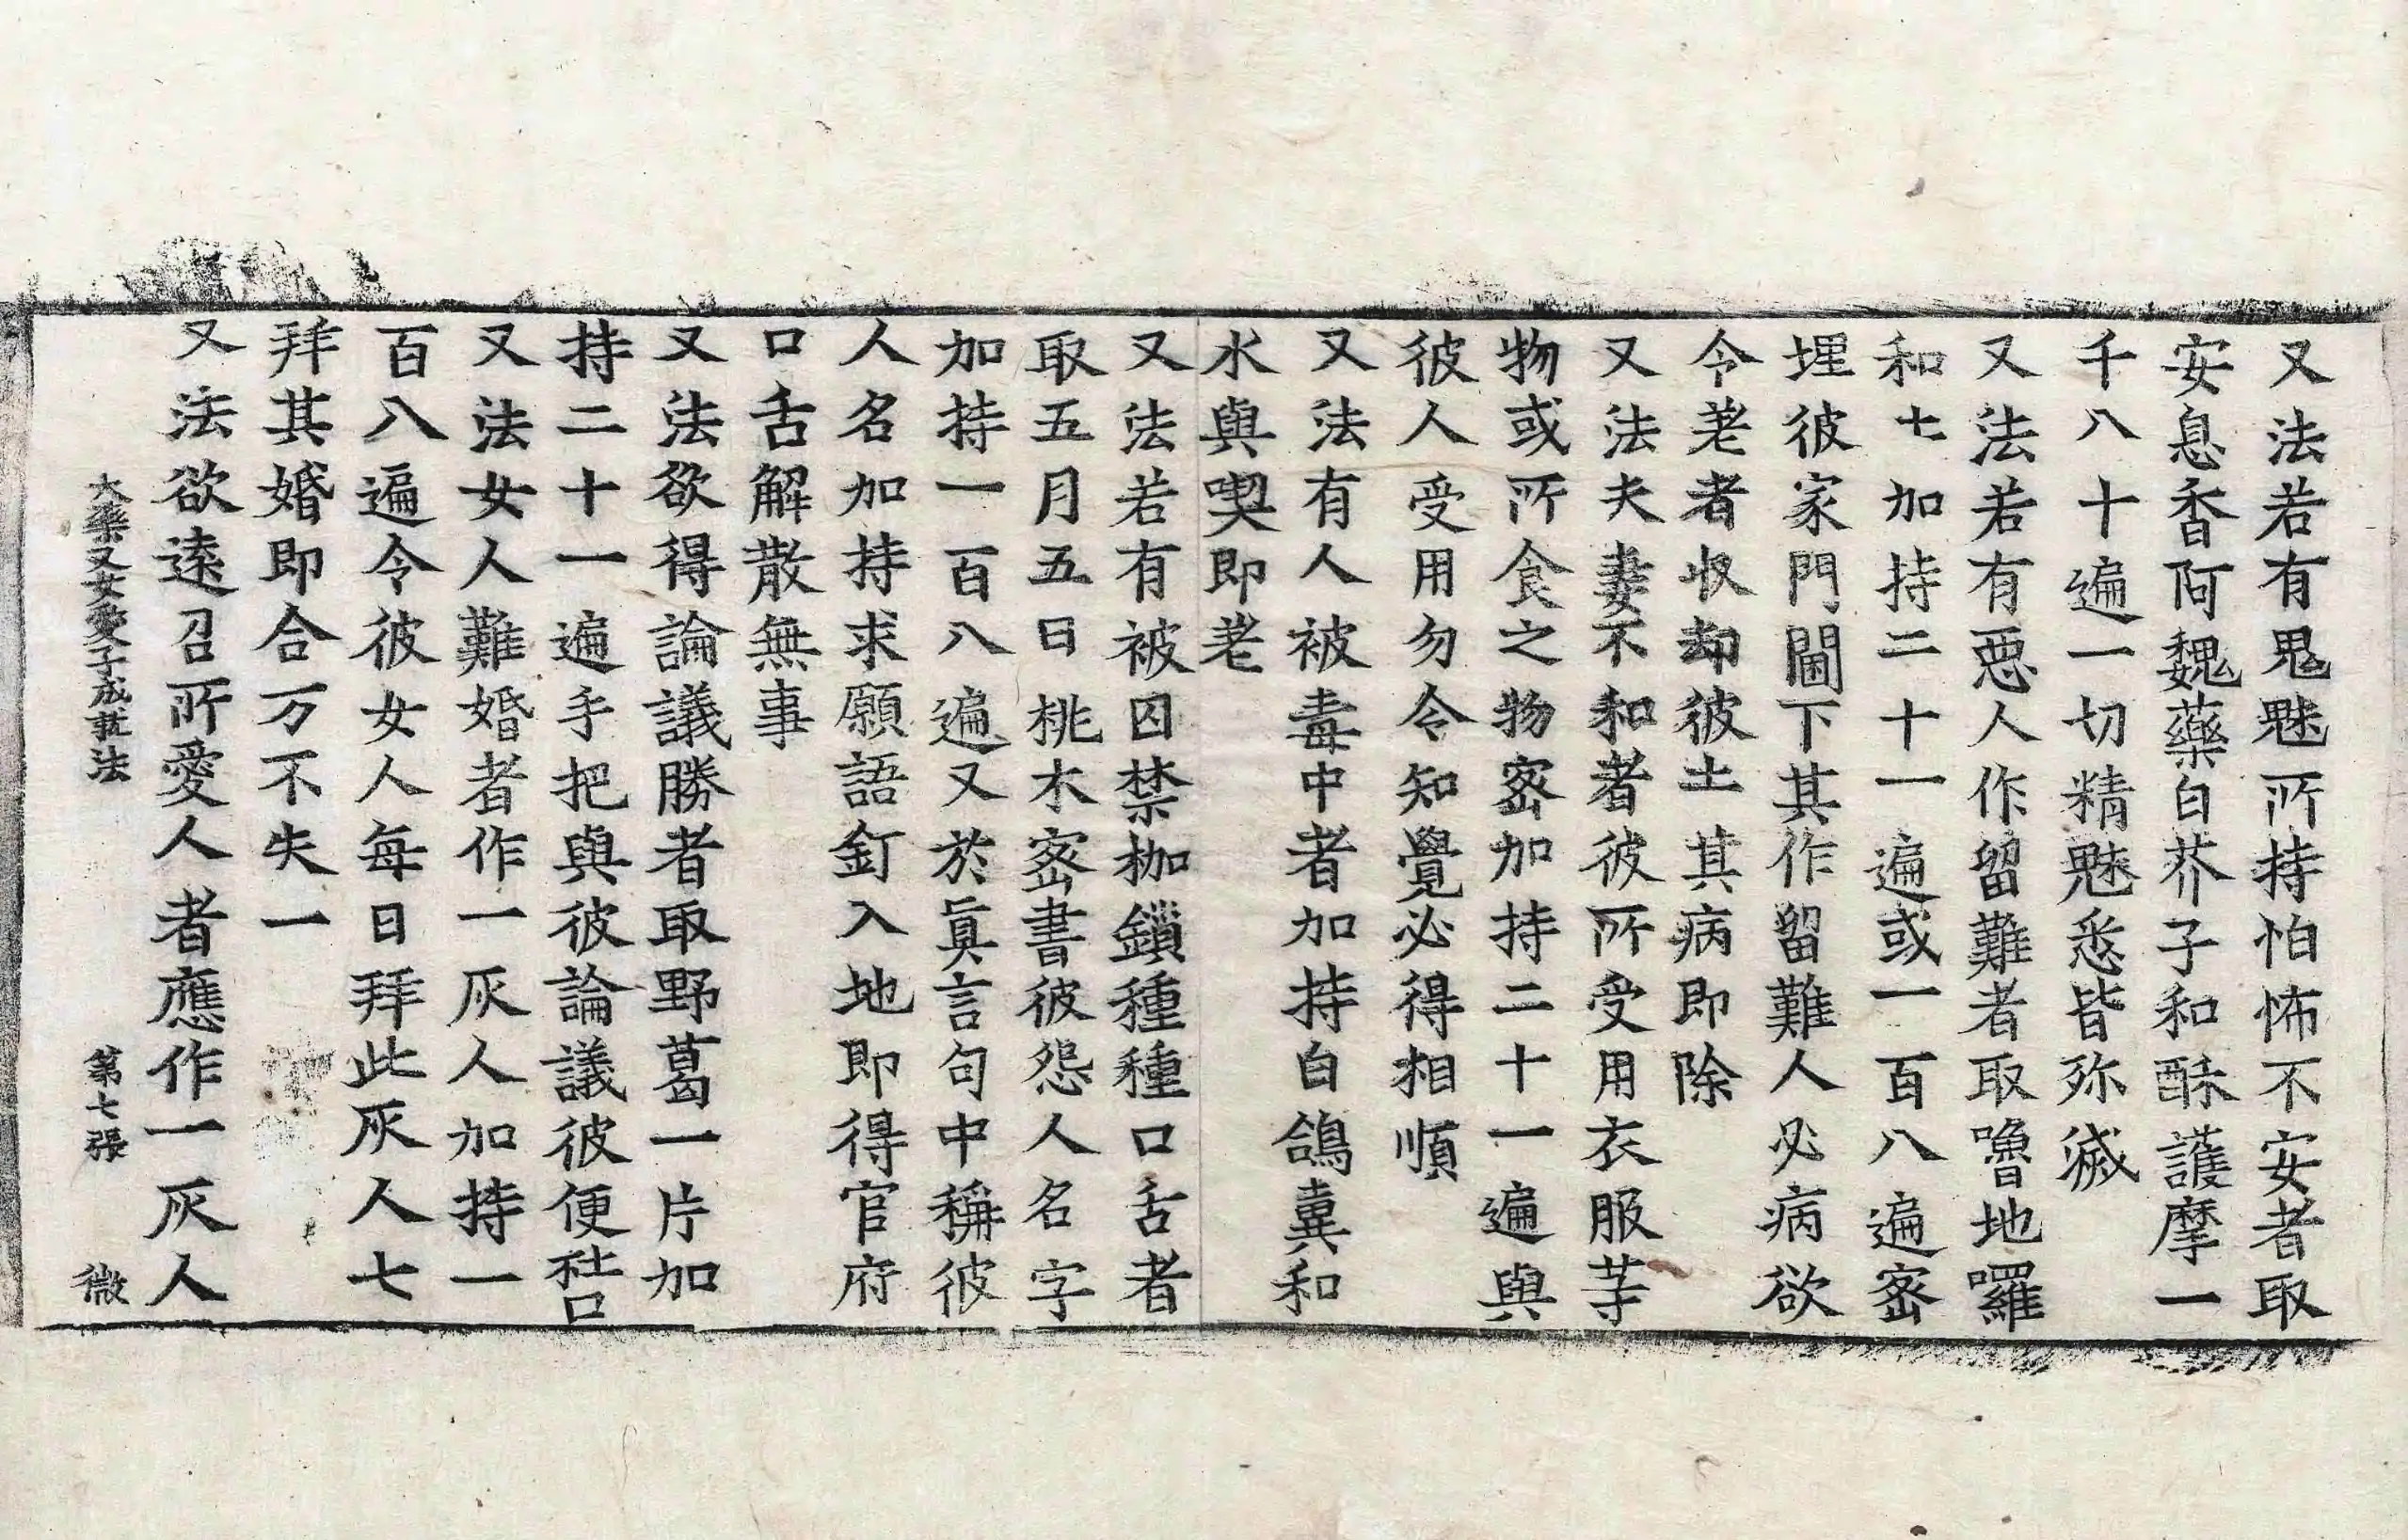 又法若有鬼魅所持怕怖不安者取
安息香阿魏藥白芥子和酥護摩一
千八十遍一切精魅悉皆殄滅
又法若有惡人作留難者取嚕地囉
和七加持二十一遍或一百八遍密
埋彼家門閫下其作留難人必病欲
令差者收却彼土其病即除
又法夫妻不和者彼所受用衣服等
物或所食之物密加持二十一遍與
彼人受用勿令知覺必得相順
又法有人被毒中者加持白鴿糞和
水與喫即差
又法若有被囚禁枷鎖種種口舌者
取五月五日桃木密書彼怨人名字
加持一百八遍又於真言句中稱彼
人名加持求願語釘入地即得官府
口舌解散無事
又法欲得論議勝者取野葛一片加
持二十一遍手把與彼論議彼便𠹛
又法女人難婚者作一灰人加持一
百八遍令彼女人每日拜此灰人七
拜其婚即合万不失一
又法欲遠召所愛人者應作一灰人
大藥叉女愛子成就法 第七張 微